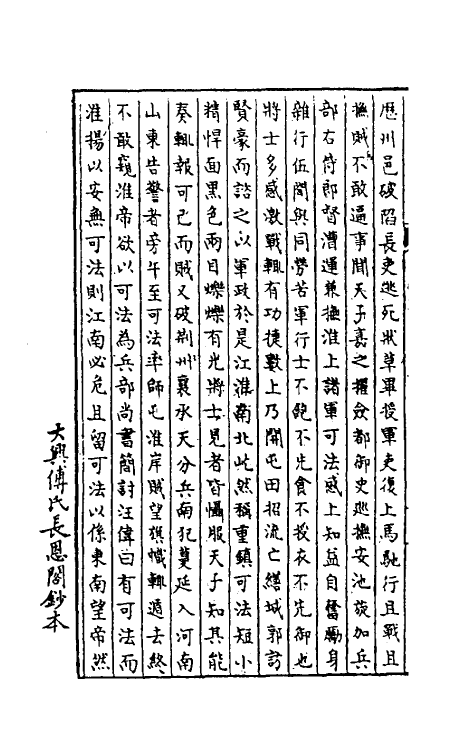 歷州邑破陷長吏逃死狀草畢授軍吏復上馬馳行且戰且
撫賊不敢逼事聞天子嘉之擢僉都御史巡撫安池旋加兵
部右侍郎督漕運兼撫淮上諸軍可法感上知益自奮勵身
雜行伍間與同勞苦軍行士不飽不先食不授衣不先御也
將士多感激戰輒有功捷數上乃開屯田招流亡繕城郭訪
賢豪而諮之以軍政於是江淮南北屹然稱重鎮可法短小
精悍面黑色兩目爍爍有光將士見者皆懾服天子知其能
奏輒報可已而賊又破荆州襄承天分兵南犯蔓延入河南
山東告警者旁午至可法率師屯淮岸賊望旗幟輒遁去終
不敢窺淮帝欲以可法為兵部尚書簡討汪偉曰有可法而
淮揚以安無可法則江南必危且留可法以係東南望帝然
大興傅氏長恩閣鈔本